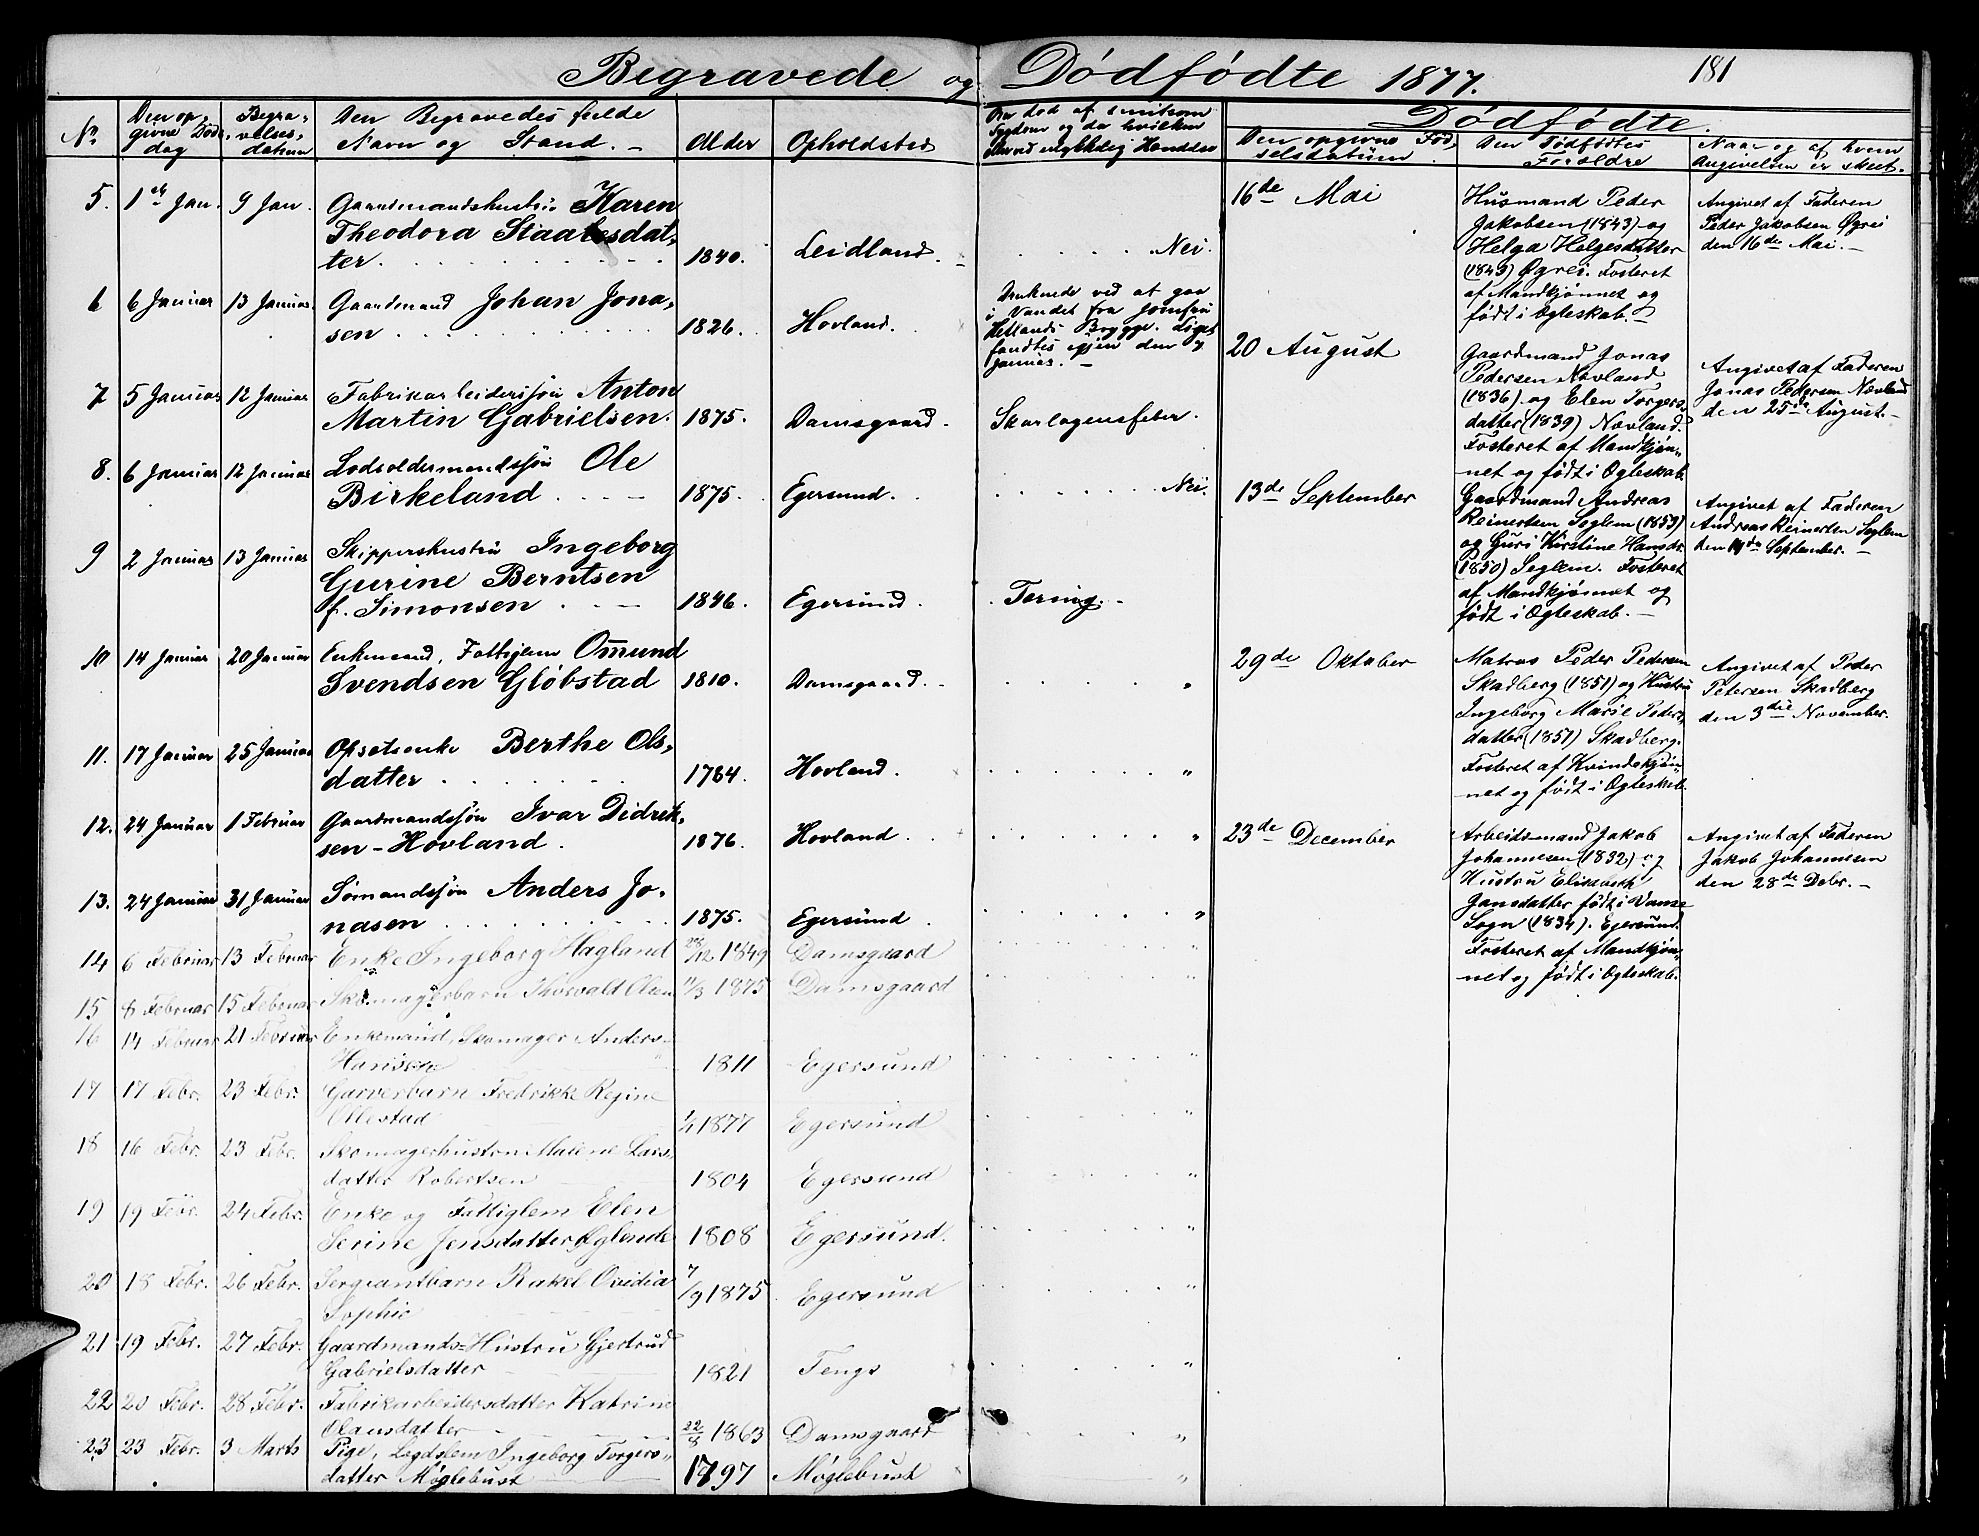 Begravede og Dødfødte 1877. 181
No. Den op- Begra- Den Begravedes fulde Alder Opholdsted
givne Døds- velses- Navn og Stand.
dag datum
Dødfødte.
Den opgivne Fød- Den Dødfødtes Naar og af hvem
selsdatum Forældre Angivelsen er skeet.
5. 1ste Jan. 9 Jan. Gaardmandshustru Karen
Theodora Staalesdat-
ter. 1840. Leidland. Nei.
6 6 Januar 13 Januar. Gaardmand Johan Jona-
sen 1826. Hovland.
Druknede ved at gaa
i Vandet fra Jomfru
Hetlands Brygge. Liget
fandtes igjen den 7
Januar.
7 5 Januar 12 Januar Fabrikarbeiderssøn Anton
Martin Gabrielsen. 1875. Damsgaard. Skarlagensfeber.
8. 6 Januar 12 Januar Lodsoldermandssøn Ole
Birkeland 1875. Egersund. Nei.
9 2 Januar 13 Januar Skippershustru Ingeborg
Gurine Berntsen
f. Simonsen 1846. Egersund. Tæring.
10 14 Januar 20 Januar Enkemand, Fattiglem Omund
Svendsen Gløbstad 1810. Damsgaard. "
11. 17 Januar 25 Januar Opsatsenke Berthe Ols-
datter 1784. Hovland. "
12. 24 Januar 1 Februar Gaardmandssøn Ivar Didrik-
sen-Hovland. 1876. Hovland "
13. 24 Januar 31 Januar Sømandssøn Anders Jo-
nasen 1875. Egersund. "
14 6 Februar 13 Februar Enke Ingeborg Hagland 28/12 1849 Damsgaard "
15 8 Februar 15 Februar Skomagerbarn Thorvald Olsen 11/3 1875 Damsgaard "
16 14 Februar 21 Februar Enkemand, Skomager Anders
Hansen 1811 Egersund "
17 17 Febr. 23 Febr. Garverbarn Fredrikke Regine
Ollestad 1/1 1877 Egersund "
18 16 Febr. 23 Febr. Skomagerhustru Malene Lars-
datter Robertsen 1804 Egersund "
19 19 Febr. 24 Febr. Enke og Fattiglem Elen
Serine Jensdatter Eglende 1808 Egersund. "
20 18 Febr. 26 Febr. Sergeantbarn Rakel Ovidia
Sophie 7/9 1875 Egersund "
21 19 Febr. 27 Febr. Gaardmands-Hustru Gjertrud
Gabrielsdatter 1821 Tengs "
22 20 Febr. 28 Febr. Fabrikarbeidersdatter Katrine
Olausdatter 22/8 1863 Damsgaard "
23 23 Febr. 3 Marts Pige, Legdslem Ingeborg Torgers-
datter Møglebust 1797 Møglebust "
16de Mai
Husmand Peder
Jakobsen (1843) og
Helga Helgesdatter
(1843) Øgrei. Fosteret
af Mandkjønnet og
født i Ægteskab.
Angivet af Faderen
Peder Jakobsen Øgrei
den 16de Mai.
20 August
Gaardmand Jonas
Pedersen Nevland
(1836) og Elen Torgers-
datter (1839) Nevland.
Fosteret af Mandkjøn-
net og født i Ægteskab.
Angivet af Faderen
Jonas Pedersen Nevland
den 25de August.
13de September
Gaardmand Andreas
Reinertsen Seglem (1853)
og Guri Kirstine Hansdr.
(1850) Seglem. Fosteret
af Mandkjønnet og
født i Ægteskab.
Angivet af Faderen
Andreas Reinertsen Seglem
den 14de September.
29de Oktober
Matros Peder Pedersen
Skadberg (1851) og Hustru
Ingeborg Marie Peders-
datter (1851) Skadberg.
Fosteret af Kvindekjøn-
net og født i Ægteskab.
Angivet af Peder
Petersen Skadberg
den 3die November.
23de December
Arbeidsmand Jakob
Johannesen (1832) og
Hustru Elisabeth
Jansdatter født i Vanse
Sogn (1834). Egersund.
Fosteret af Mandkjøn-
net og født i Ægteskab.
Angivet af Faderen
Jakob Johannesen
den 28de Debr.